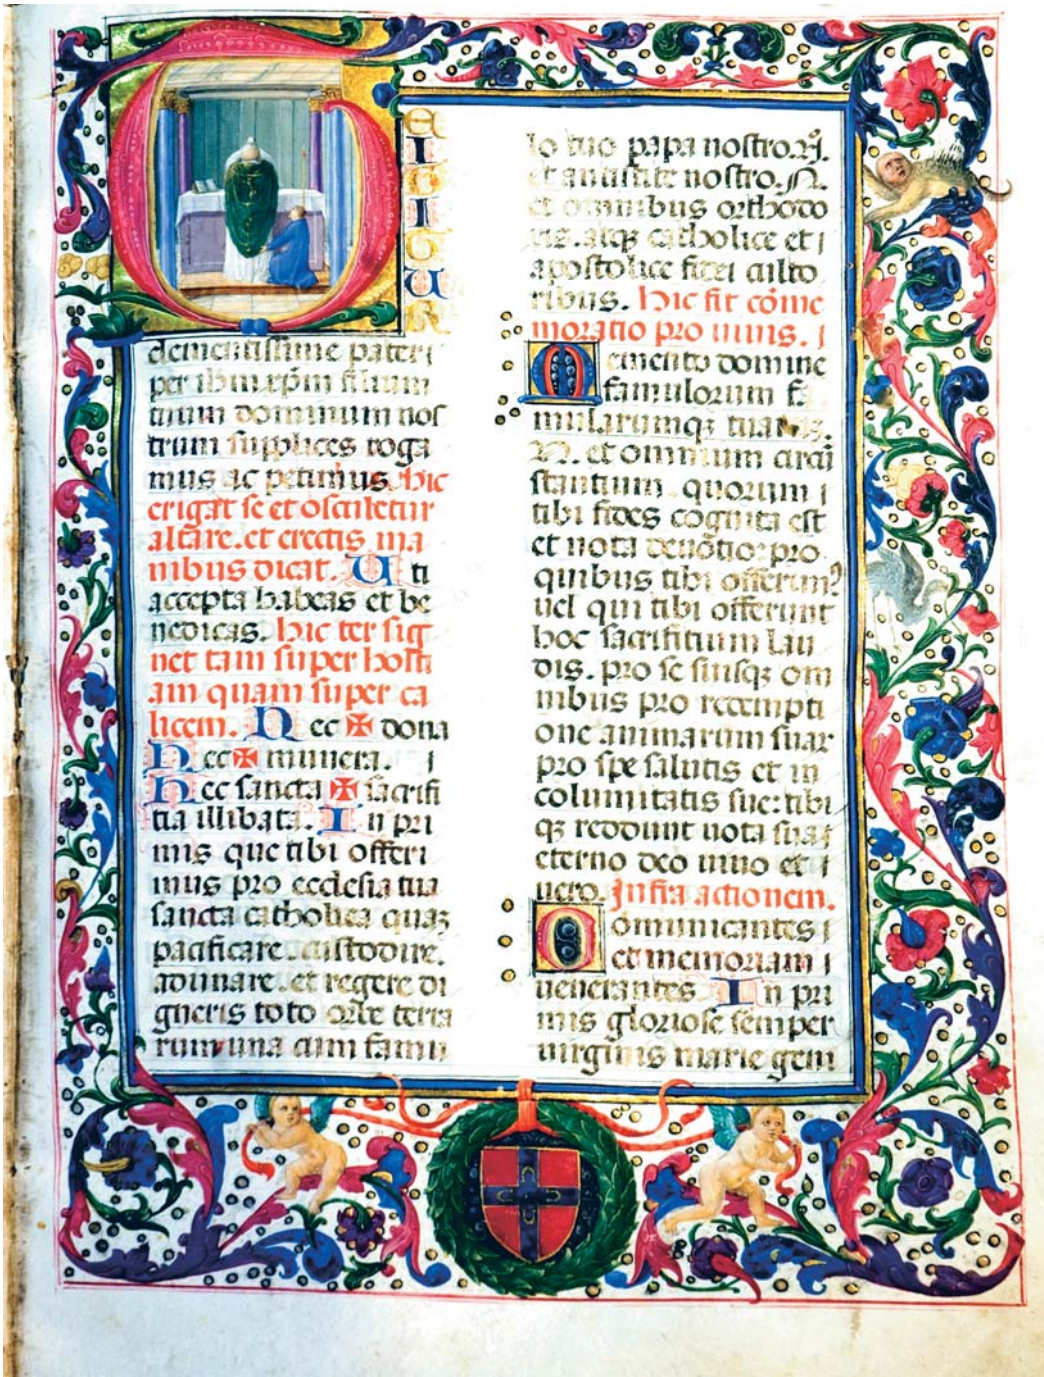 TE
I
G
I
T
U
R
clementissime pater
per ihm xpm filium
tuum dominum nos
trum supplices roga
mus ac petimus. Hic
erigat se et osculetur
altare. et erectis ma
nibus dicat. Uti
accepta habeas et be
nedicas. Hic ter sig
net tam super hosti
am quam super ca
licem. Hec ✠ dona
Hec ✠ munera.
Hec sancta ✠ sacrifi
tia illibata. In pri
mis que tibi offeri
mus pro ecclesia tua
sancta catholica quaꝫ
pacificare. custodire.
adunare. et regere di
gneris toto orbe terra
rum una cum famu
lo tuo papa nostro. N.
et antistite nostro. N.
et omnibus orthodo
xis. atqꝫ catholice et
apostolice fidei culto
ribus. Hic fit come
moratio pro uiuis.
Memento domine
famulorum fa
mularumqꝫ tuaꝝ.
N. et omnium circu
stantium. quorum
tibi fides cognita est
et nota deuotio: pro
quibus tibi offerimꝰ
uel qui tibi offerunt
hoc sacrifitium lau
dis. pro se suisqꝫ om
nibus pro redempti
one animarum suaꝝ
pro spe salutis et in
columitatis sue: tibi
qꝫ reddunt uota sua
eterno deo uiuo et
uero. Infra actionem.
Comunicantes
et memoriam
uenerantes. In pri
mis gloriose semper
uirginis marie geni